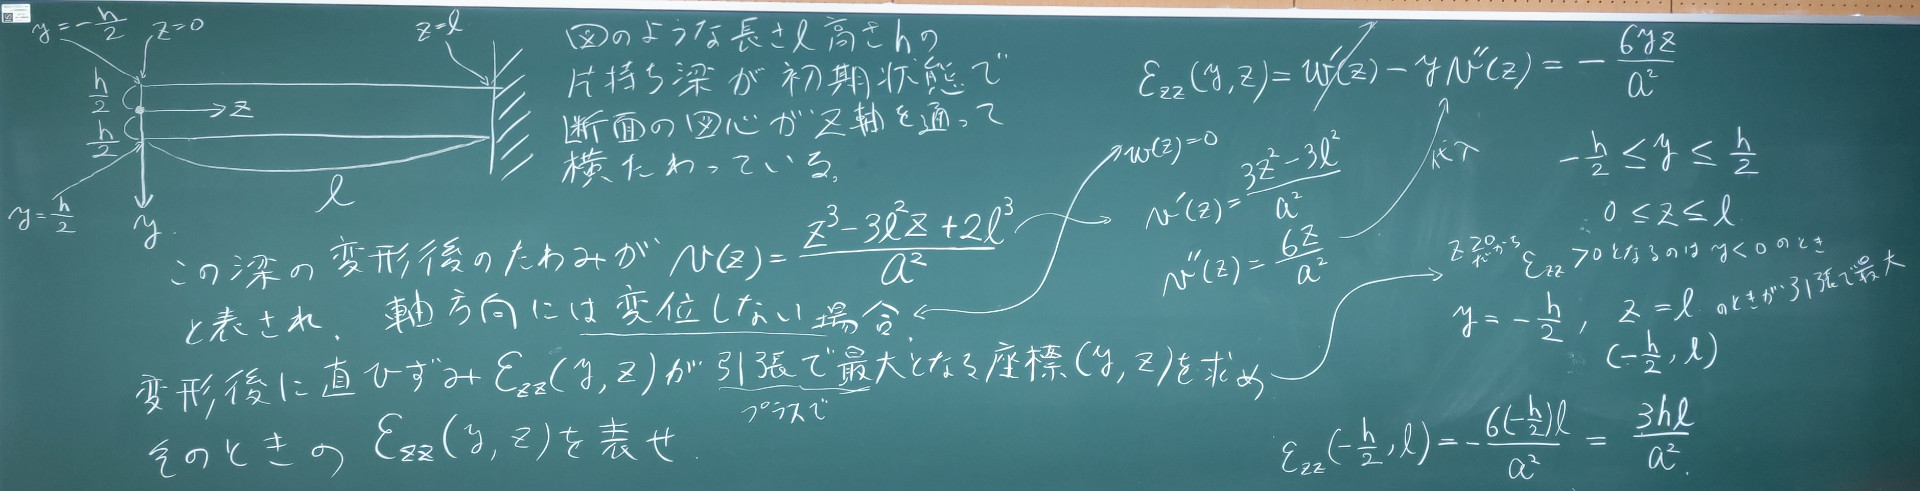 y=-h/2
z=0
z=l
h/2
h/2
z
y=h/2
y
l
図のような長さl 高さhの
片持ち梁が初期状態で
断面の図心がz軸を通って
横たわっている。
この梁の変形後のたわみが v(z)=(z³-3l²z+2l³)/a²
と表され、軸方向には変位しない場合、
変形後に直ひずみ εzz(y,z)が引張で最大となる座標(y,z)を求め
プラスで
そのときの εzz(y,z)を表せ.
εzz(y,z)=w'(z)-yv''(z)=-6yz/a²
w(z)=0
v'(z)=(3z²-3l²)/a²
v''(z)=6z/a²
代入
-h/2≦y≦h/2
0≦z≦l
z≧0だから εzz>0となるのはy<0のとき
y=-h/2, z=l のときが引張で最大
(-h/2, l)
εzz(-h/2, l)=-6(-h/2)l/a²=3hl/a².